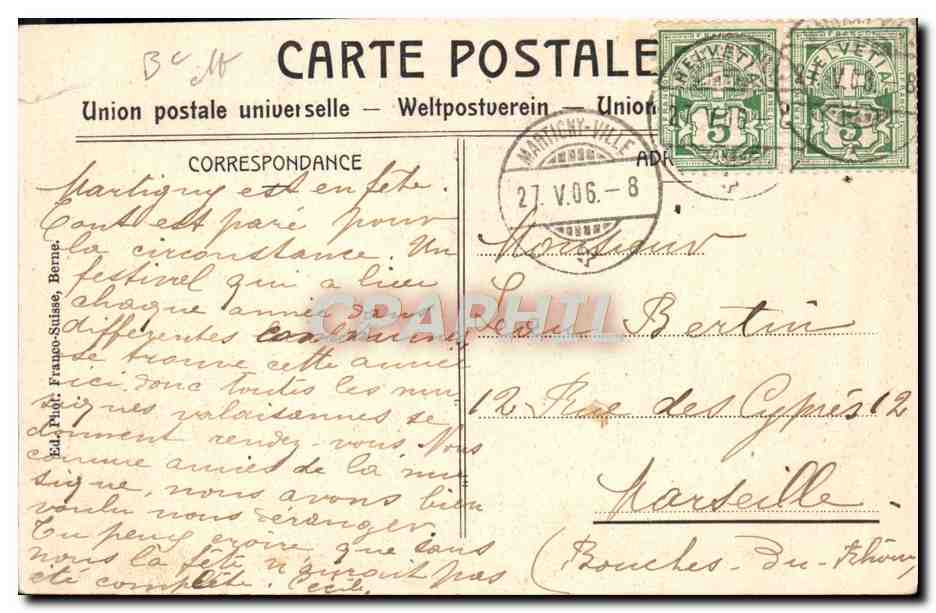 Bc
CARTE POSTALE
Union postale universelle — Weltpostverein — Union
CORRESPONDANCE
HELVETIA
5
27 V
HELVETIA
5
V.06 8
MARTIGNY-VILLE
27. V.06.—8
Martigny est en fête.
Tout est paré pour
la circonstance. Un
festival qui a lieu
chaque année dans
différentes communes
se trouve cette année
ici, donc toutes les mu
siques valaisannes se
donnent rendez-vous. Nous
comme amies de la mu
sique, nous avons bien
voulu nous déranger.
Tu peux croire que sans
nous la fête n'auroit pas
été complète. Cécile.
Monsieur
Léon Bertin
12 Rue des Cyprès 12
Marseille
(Bouches-Du-Rhône)
Ed. Phot. Franco-Suisse, Berne.
CPAPHIL